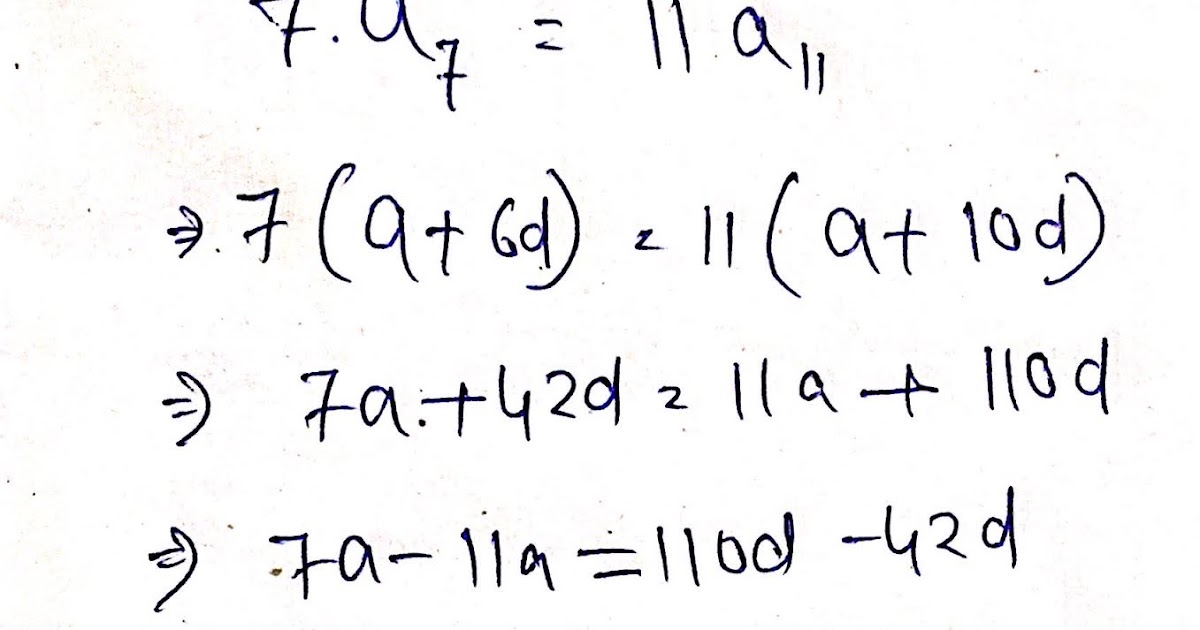 7.a₇ = 11 a₁₁
⇒ 7(a+6d) = 11(a+10d)
⇒ 7a+42d = 11a + 110d
⇒ 7a-11a = 110d - 42d